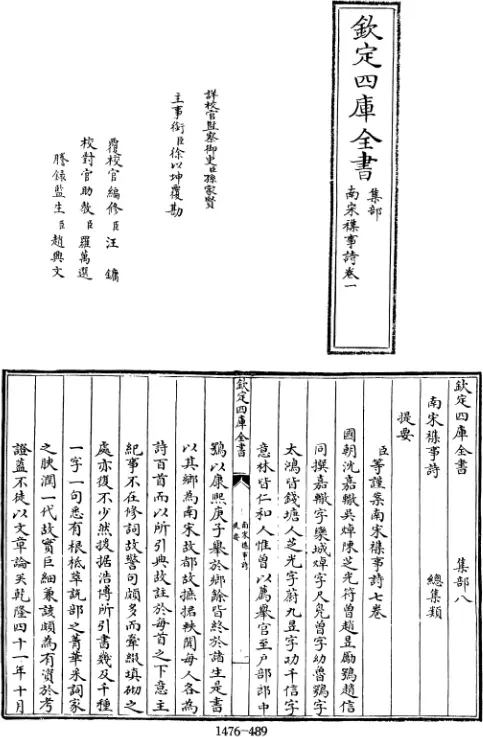 欽定四庫全書
集部
南宋襍事詩卷一
詳校官監察御史臣孫家賢
主事銜臣徐以坤覆勘
覆校官編修臣汪鏞
校對官助教臣羅萬選
謄錄監生臣趙興文
欽定四庫全書 集部八
南宋襍事詩 總集類
提要
臣等謹案南宋襍事詩七卷
國朝沈嘉轍吳焯陳芝光符曾趙昱厲鶚趙信
同撰嘉轍字欒城焯字尺鳧曾字幼魯鶚字
太鴻皆錢塘人芝光字蔚九昱字功千信字
意林皆仁和人惟曾以薦舉官至戶部郎中
欽定四庫全書
南宋襍事詩
提要
鶚以康熙庚子舉於鄉餘皆終於諸生是書
以其鄉為南宋故都故摭拾軼聞每人各為
詩百首而以所引典故註於每首之下意主
紀事不在修詞故警句頗多而牽綴填砌之
處亦復不少然援据浩博所引書幾及千種
一字一句悉有根柢萃説部之菁華采詞家
之腴潤一代故實巨細兼該頗為有資於考
證蓋不徒以文章論矣乾隆四十一年十月
1476-489